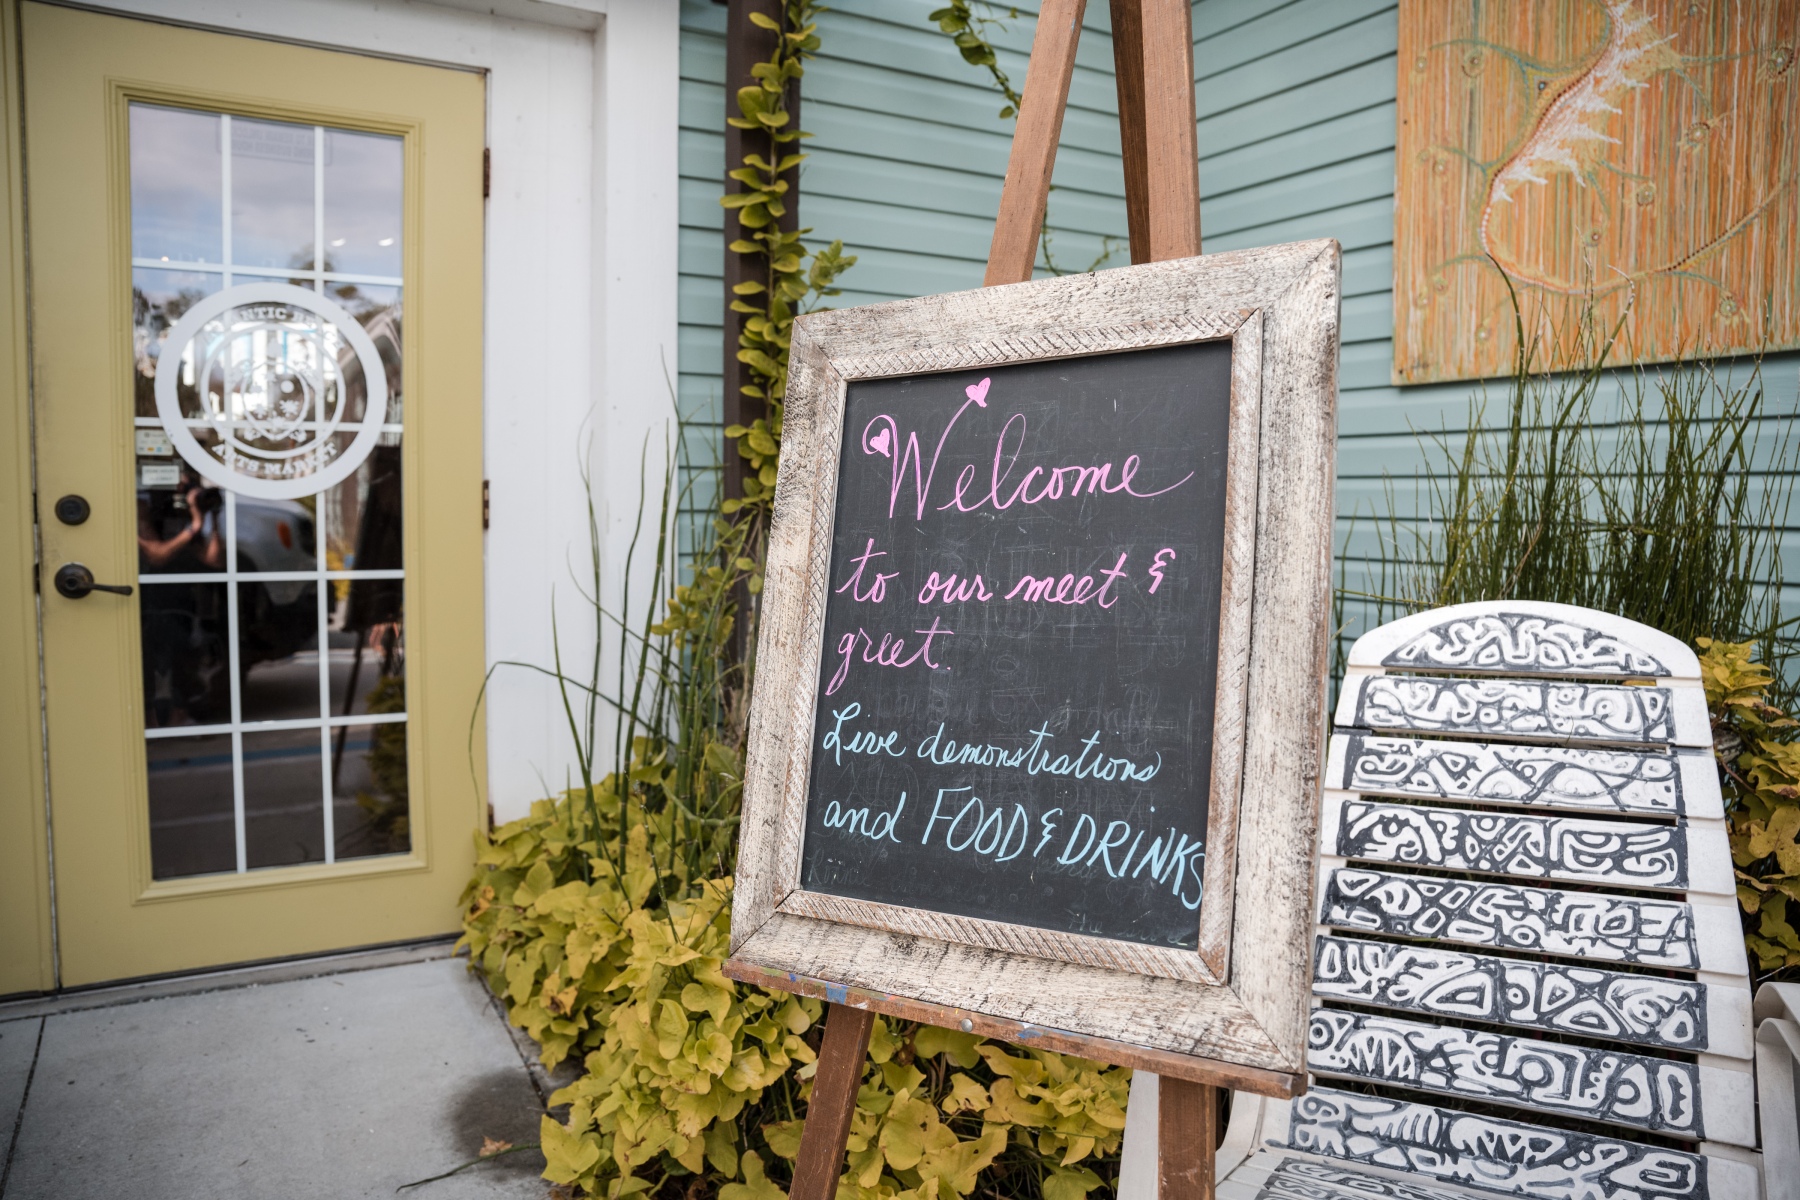 Welcome
to our meet &
greet.
Live demonstrations
and FOOD & DRINKS
ARTS MARKET